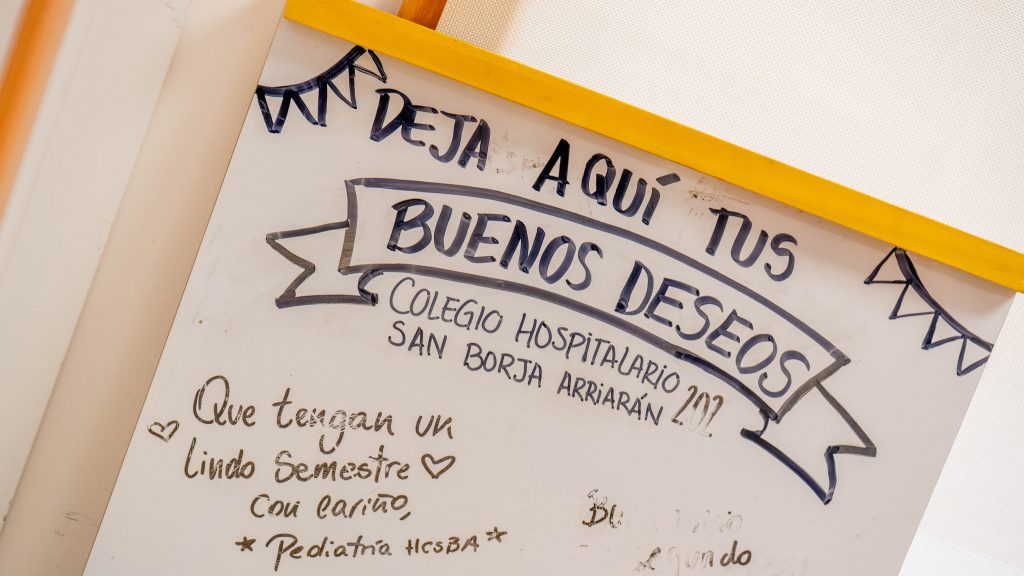 DEJA AQUÍ TUS
BUENOS DESEOS
COLEGIO HOSPITALARIO
SAN BORJA ARRIARÁN 202
Que tengan un
lindo semestre
con cariño,
* Pediatría HCSBA *
segundo